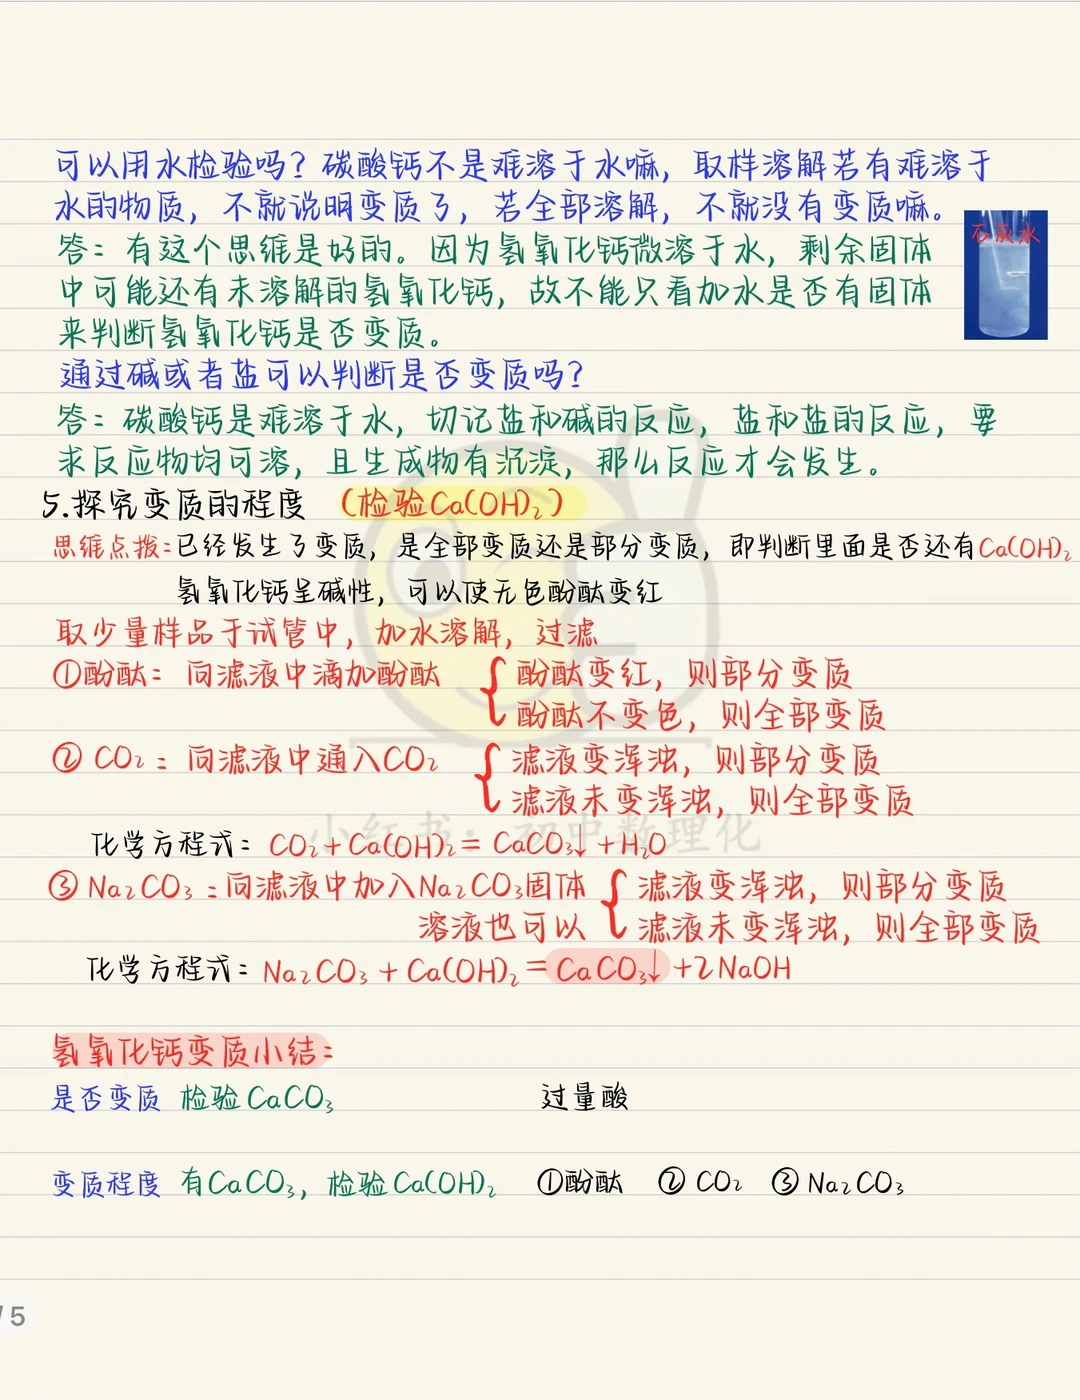 可以用水检验吗？碳酸钙不是难溶于水嘛，取样溶解若有难溶于
水的物质，不就说明变质了，若全部溶解，不就没有变质嘛。
石灰水
答：有这个思维是好的。因为氢氧化钙微溶于水，剩余固体
中可能还有未溶解的氢氧化钙，故不能只看加水是否有固体
来判断氢氧化钙是否变质。
通过碱或者盐可以判断是否变质吗？
答：碳酸钙是难溶于水，切记盐和碱的反应，盐和盐的反应，要
求反应物均可溶，且生成物有沉淀，那么反应才会发生。
5.探究变质的程度 （检验Ca(OH)₂）
思维点拨：已经发生了变质，是全部变质还是部分变质，即判断里面是否还有Ca(OH)₂
氢氧化钙呈碱性，可以使无色酚酞变红
取少量样品于试管中，加水溶解，过滤
①酚酞：向滤液中滴加酚酞 { 酚酞变红，则部分变质
酚酞不变色，则全部变质
② CO₂：向滤液中通入CO₂ { 滤液变浑浊，则部分变质
滤液未变浑浊，则全部变质
小红书：初中数理化
化学方程式：CO₂+Ca(OH)₂= CaCO₃↓+H₂O
③ Na₂CO₃：向滤液中加入Na₂CO₃固体 { 滤液变浑浊，则部分变质
溶液也可以 滤液未变浑浊，则全部变质
化学方程式：Na₂CO₃+Ca(OH)₂=CaCO₃↓+2NaOH
氢氧化钙变质小结：
是否变质 检验CaCO₃ 过量酸
变质程度 有CaCO₃，检验Ca(OH)₂ ①酚酞 ② CO₂ ③ Na₂CO₃
/ 5